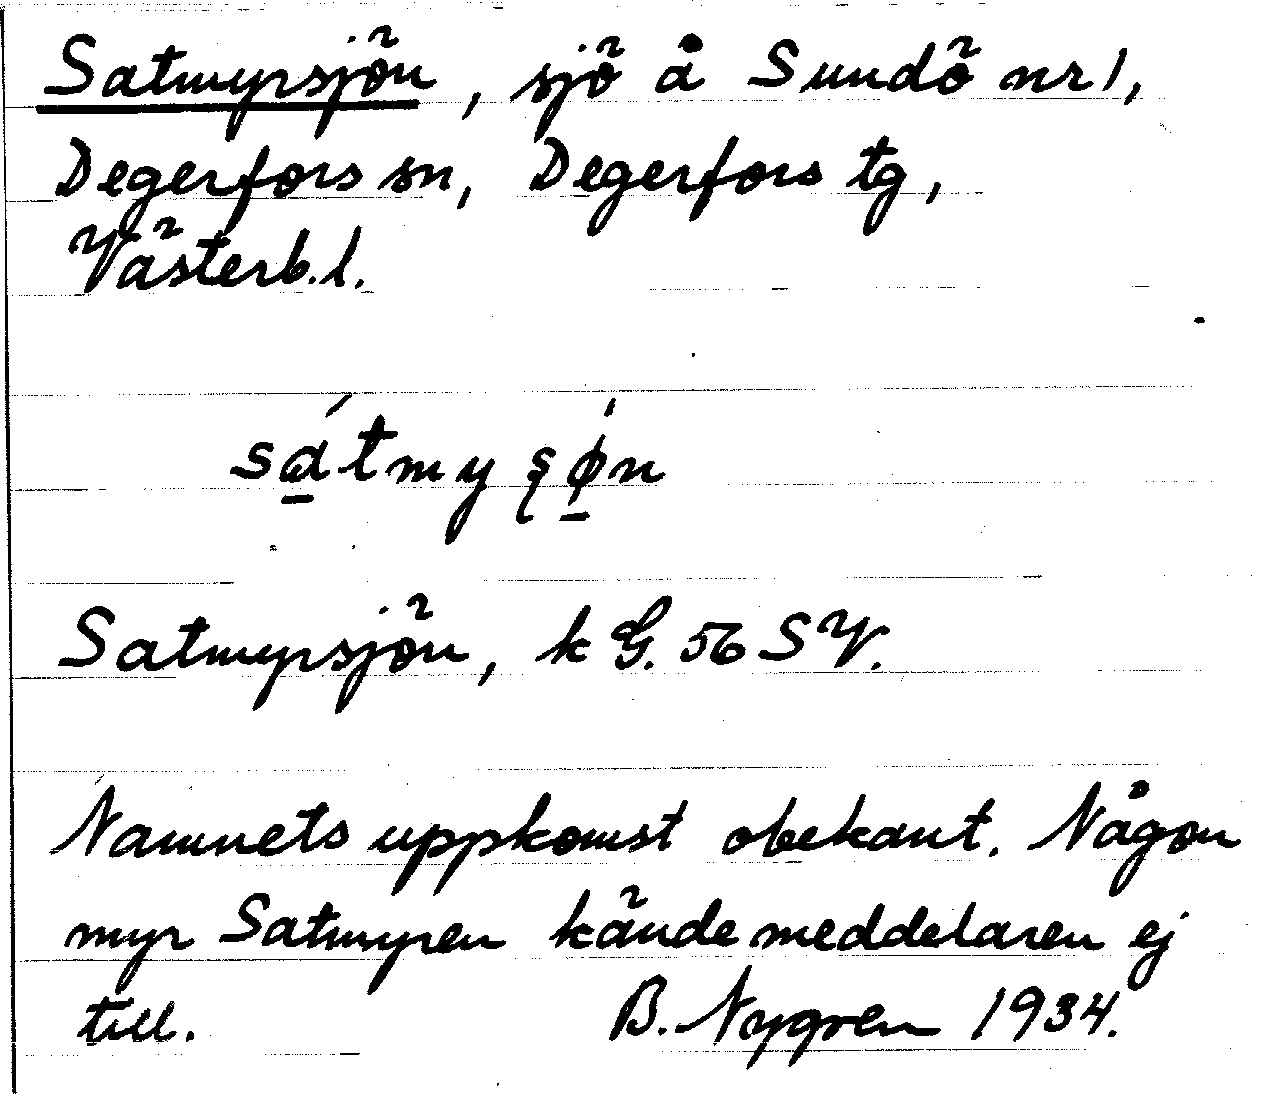 Satmyrsjön, sjö å Sundö nr 1,
Degerfors sn, Degerfors tg,
Västerb. l.
sátmyʂǿn
Satmyrsjön, k G. 56 SV.
Namnets uppkomst obekant. Någon
myr Satmyren kände meddelaren ej
till. B. Nygren 1934.